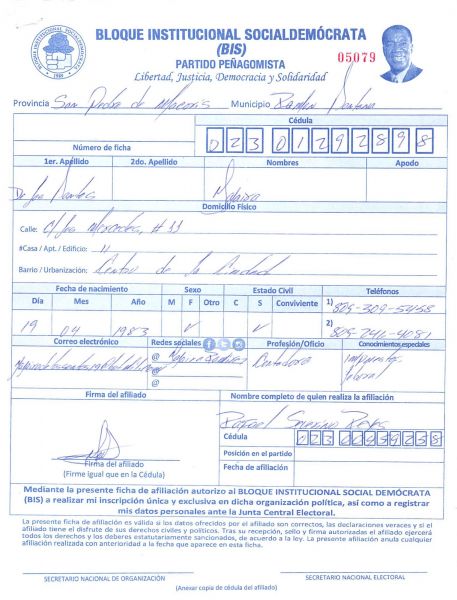 BLOQUE INSTITUCIONAL SOCIALDEMÓCRATA
(BIS)
PARTIDO PEÑAGOMISTA
05079
Libertad, Justicia, Democracia y Solidaridad
Provincia San Pedro de Macoris Municipio Ramon Santana
Cédula
Número de ficha 023 01292898
1er. Apellido 2do. Apellido Nombres Apodo
De Los Santos
Domicilio Físico
Calle: C/ Las Mercedes, # 33
#Casa / Apt. / Edificio: 11
Barrio / Urbanización: Centro de la Ciudad
Fecha de nacimiento Sexo Estado Civil Teléfonos
Día Mes Año M F Otro C S Conviviente 1) 809-309-5458
19 04 1983 ✓ ✓ 2) 809-246-4081
Correo electrónico Redes sociales Profesión/Oficio Conocimientos especiales
@ Contadora Impuestos
@
@
Firma del afiliado Nombre completo de quien realiza la afiliación
Rafael Severino Reyes
Cédula
Posición en el partido
Fecha de afiliación
Firma del afiliado
(Firme igual que en la Cédula)
Mediante la presente ficha de afiliación autorizo al BLOQUE INSTITUCIONAL SOCIAL DEMÓCRATA
(BIS) a realizar mi inscripción única y exclusiva en dicha organización política, así como a registrar
mis datos personales ante la Junta Central Electoral.
La presente ficha de afiliación es válida si los datos ofrecidos por el afiliado son correctos, las declaraciones veraces y si el
afiliado tiene el disfrute de sus derechos civiles y políticos. Tras su recepción, sello y firmas autorizadas el afiliado ejercerá
todos los derechos y los deberes estatutariamente sancionados, de acuerdo a la ley. La presente afiliación anula cualquier
afiliación realizada con anterioridad a la fecha que aparece en esta ficha.
SECRETARIO NACIONAL DE ORGANIZACIÓN SECRETARIO NACIONAL ELECTORAL
(Anexar copia de cédula del afiliado)